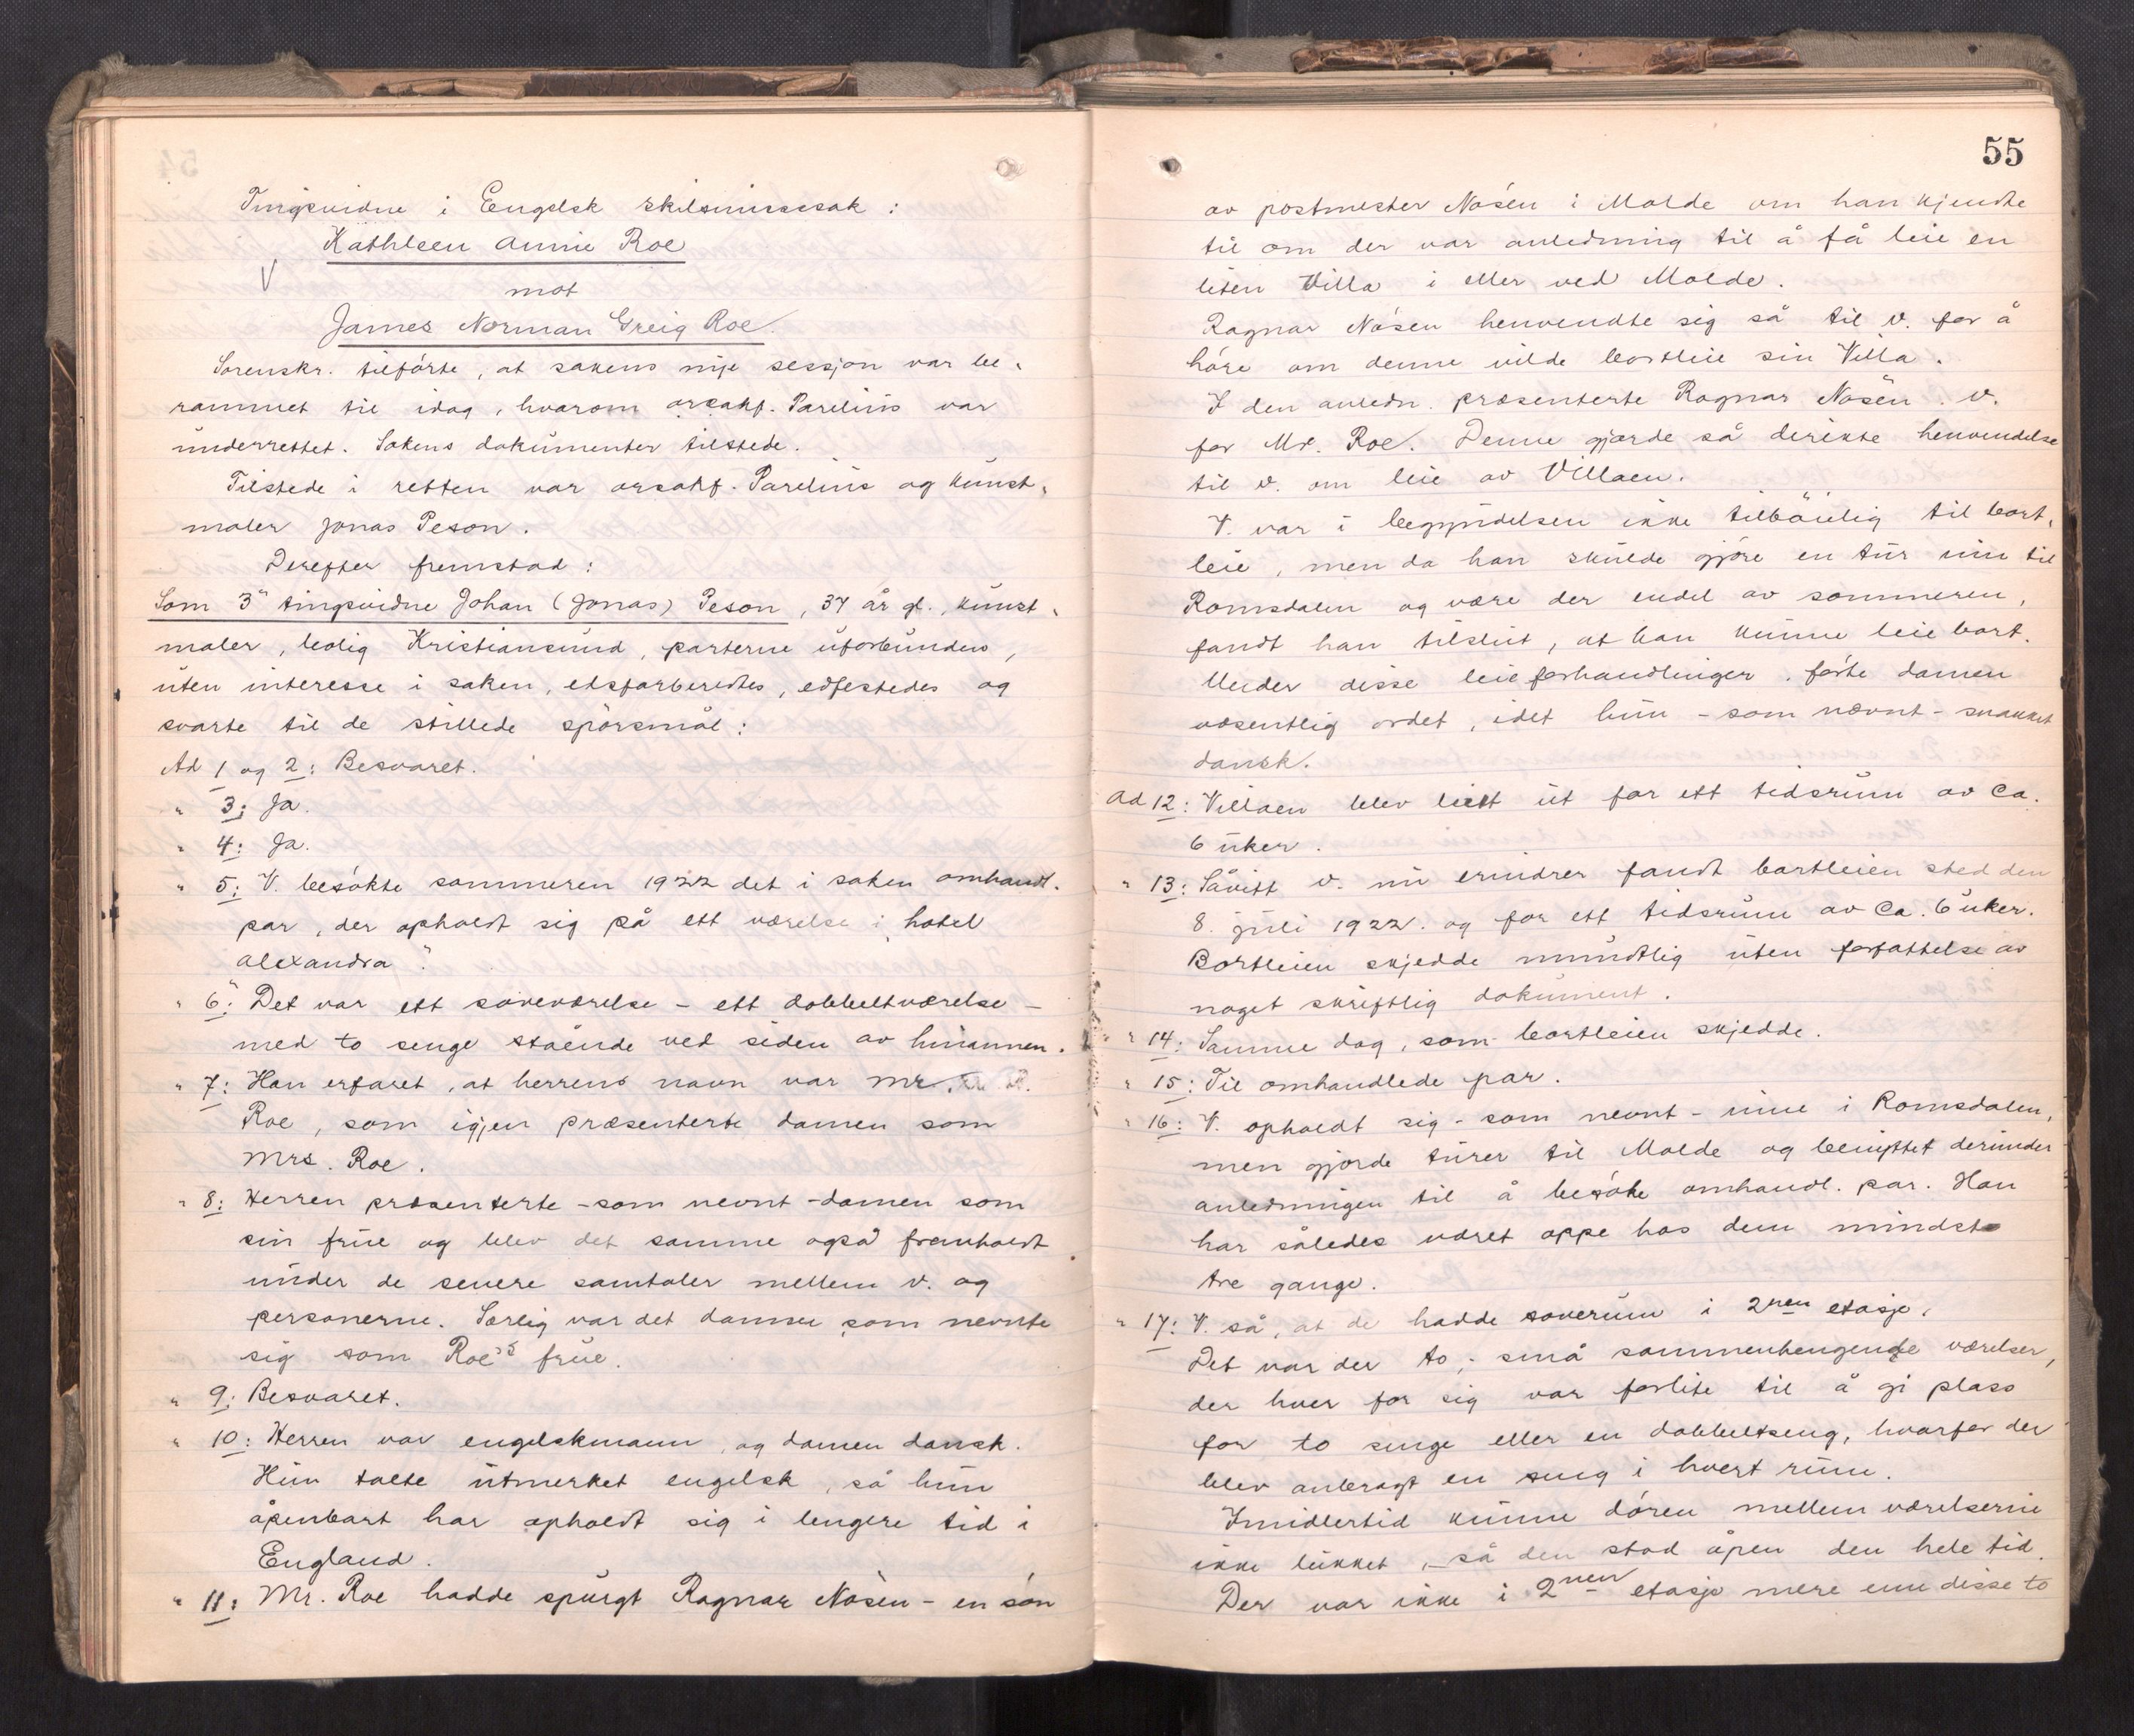 Tingsvidne i Engelsk skilsmissesak:
Kathleen Annie Roe
V
mot
James Norman Greig Roe.
Sorenskr. tilførte, at sakens nye sessjon var be-
rammet til idag, hvorom orsakf. Parelius var
underrettet. Sakens dokumenter tilstede.
Tilstede i retten var orsakf. Parelius og kunst-
maler Jonas Peson.
Derefter fremstod:
Som 3" tingsvidne Johan (Jonas) Peson, 37 år gl., kunst-
maler, bolig Kristiansund, parterne uforbunden,
uten interesse i saken, edsforberedtes, edfestedes og
svarte til de stillede spørsmål:
Ad 1 og 2: Besvaret.
" 3: Ja.
" 4: Ja.
" 5: V. besøkte sommeren 1922 det i saken omhandl.
par, der opholdt sig på ett værelse i „hotel
Alexandra".
" 6: Det var ett soveværelse – ett dobbeltværelse –
med to senge stående ved siden av hinannen.
" 7: Han erfaret, at herrens navn var Mr.
Roe, som igjen præsenterte damen som
Mrs. Roe.
" 8: Herren præsenterte – som nevnt – damen som
sin frue og blev det samme også fremholdt
under de senere samtaler mellem v. og
personerne. Særlig var det damen som nevnte
sig som Roe's frue.
" 9: Besvaret.
" 10: Herren var engelskmann, og damen dansk.
Hun talte utmerket engelsk, så hun
åpenbart har opholdt sig i lengere tid i
England.
" 11: Mr. Roe hadde spurgt Ragnar Nøsen – en søn
55
av postmester Nøsen i Molde om han kjendte
til om der var anledning til å få leie en
liten Villa i eller ved Molde.
Ragnar Nøsen henvendte sig så til v. for å
høre om denne vilde bortleie sin Villa.
I den anledn. præsenterte Ragnar Nøsen v.
for Mr. Roe. Denne gjorde så direkte henvendelse
til v. om leie av Villaen.
V. var i begyndelsen ikke tilbøielig til bort-
leie, men da han skulde gjøre en tur inn til
Romsdalen og være der endel av sommeren,
fandt han tilslut, at han kunne leie bort.
Under disse leieforhandlinger førte damen
væsentlig ordet, idet hun – som nævnt – snakket
dansk.
Ad 12: Villaen blev leiet ut for ett tidsrum av ca.
6 uker.
" 13: Såvitt v. nu erindrer fandt bortleien sted den
8. juli 1922. og for ett tidsrum av ca. 6 uker.
Bortleien skjedde mundtlig uten forfattelse av
noget skriftlig dokument.
" 14: Samme dag, som bortleien skjedde.
" 15: Til omhandlede par.
" 16: V. opholdt sig – som nevnt – inne i Romsdalen,
men gjorde turer til Molde og benyttet derunder
anledningen til å besøke omhandl. par. Han
har således været oppe hos dem mindst
tre gange.
" 17: V. så, at de hadde soverum i 2nen etasje.
Det var der to, små sammenhengende værelser,
der hver for sig var forlite til å gi plass
for to senge eller en dobbeltseng, hvorfor der
blev anbragt en seng i hvert rum.
Imidlertid kunne døren mellem værelserne
ikke lukket, så den stod åpen den hele tid.
Der var ikke i 2nen etasje mere enn disse to